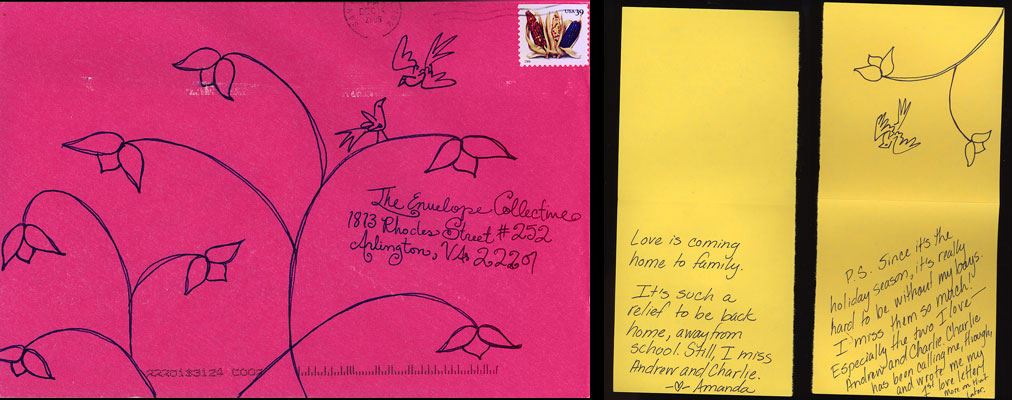 USA 39
The Envelope Collective
1813 Rhodes Street #252
Arlington, VA 22201
Love is coming
home to family.
It's such a
relief to be back
home, away from
school. Still, I miss
Andrew and Charlie.
-♡- Amanda
P.S. Since it's the
holiday season, it's really
hard to be without my boys.
I miss them so much!
Especially the two I love—
Andrew and Charlie. Charlie
has been calling me, though,
and wrote me my
1st love letter!
more on that
later.